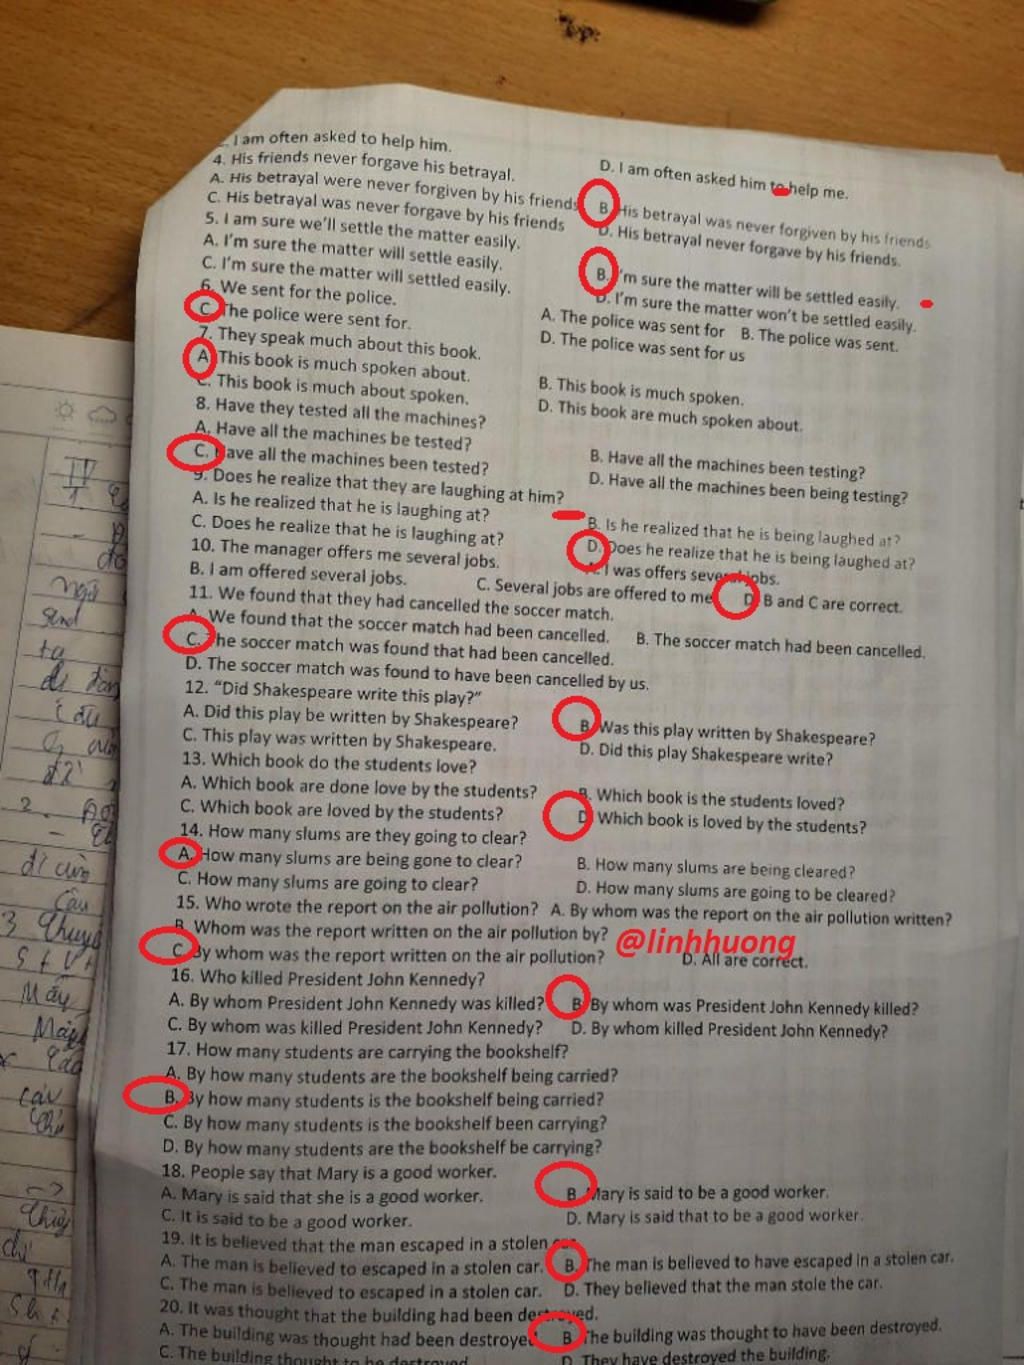 I am often asked to help him.
D. I am often asked him to help me.
4. His friends never forgave his betrayal.
A. His betrayal were never forgiven by his friends
B. His betrayal was never forgiven by his friends
C. His betrayal was never forgave by his friends
D. His betrayal never forgave by his friends.
5. I am sure we'll settle the matter easily.
A. I'm sure the matter will settle easily.
B. I'm sure the matter will be settled easily.
C. I'm sure the matter will settled easily.
D. I'm sure the matter won't be settled easily.
6. We sent for the police.
A. The police was sent for B. The police was sent.
C. The police were sent for.
D. The police was sent for us
7. They speak much about this book.
A. This book is much spoken about.
B. This book is much spoken.
C. This book is much about spoken.
D. This book are much spoken about.
8. Have they tested all the machines?
A. Have all the machines be tested?
B. Have all the machines been testing?
C. Have all the machines been tested?
D. Have all the machines been being testing?
9. Does he realize that they are laughing at him?
A. Is he realized that he is laughing at?
B. Is he realized that he is being laughed at?
C. Does he realize that he is laughing at?
D. Does he realize that he is being laughed at?
10. The manager offers me several jobs.
A. I was offers several jobs.
B. I am offered several jobs. C. Several jobs are offered to me D. B and C are correct.
11. We found that they had cancelled the soccer match.
A. We found that the soccer match had been cancelled. B. The soccer match had been cancelled.
C. The soccer match was found that had been cancelled.
D. The soccer match was found to have been cancelled by us.
12. "Did Shakespeare write this play?"
A. Did this play be written by Shakespeare?
B. Was this play written by Shakespeare?
C. This play was written by Shakespeare.
D. Did this play Shakespeare write?
13. Which book do the students love?
A. Which book are done love by the students?
B. Which book is the students loved?
C. Which book are loved by the students?
D. Which book is loved by the students?
14. How many slums are they going to clear?
A. How many slums are being gone to clear?
B. How many slums are being cleared?
C. How many slums are going to clear?
D. How many slums are going to be cleared?
15. Who wrote the report on the air pollution? A. By whom was the report on the air pollution written?
B. Whom was the report written on the air pollution by?
@linhhuong
C. By whom was the report written on the air pollution? D. All are correct.
16. Who killed President John Kennedy?
A. By whom President John Kennedy was killed? B. By whom was President John Kennedy killed?
C. By whom was killed President John Kennedy? D. By whom killed President John Kennedy?
17. How many students are carrying the bookshelf?
A. By how many students are the bookshelf being carried?
B. By how many students is the bookshelf being carried?
C. By how many students is the bookshelf been carrying?
D. By how many students are the bookshelf be carrying?
18. People say that Mary is a good worker.
A. Mary is said that she is a good worker.
B. Mary is said to be a good worker.
C. It is said to be a good worker.
D. Mary is said that to be a good worker.
19. It is believed that the man escaped in a stolen car.
A. The man is believed to escaped in a stolen car. B. The man is believed to have escaped in a stolen car.
C. The man is believed to escaped in a stolen car. D. They believed that the man stole the car.
20. It was thought that the building had been destroyed.
A. The building was thought had been destroyed B. The building was thought to have been destroyed.
C. The building thought to be destroyed
D. They have destroyed the building.